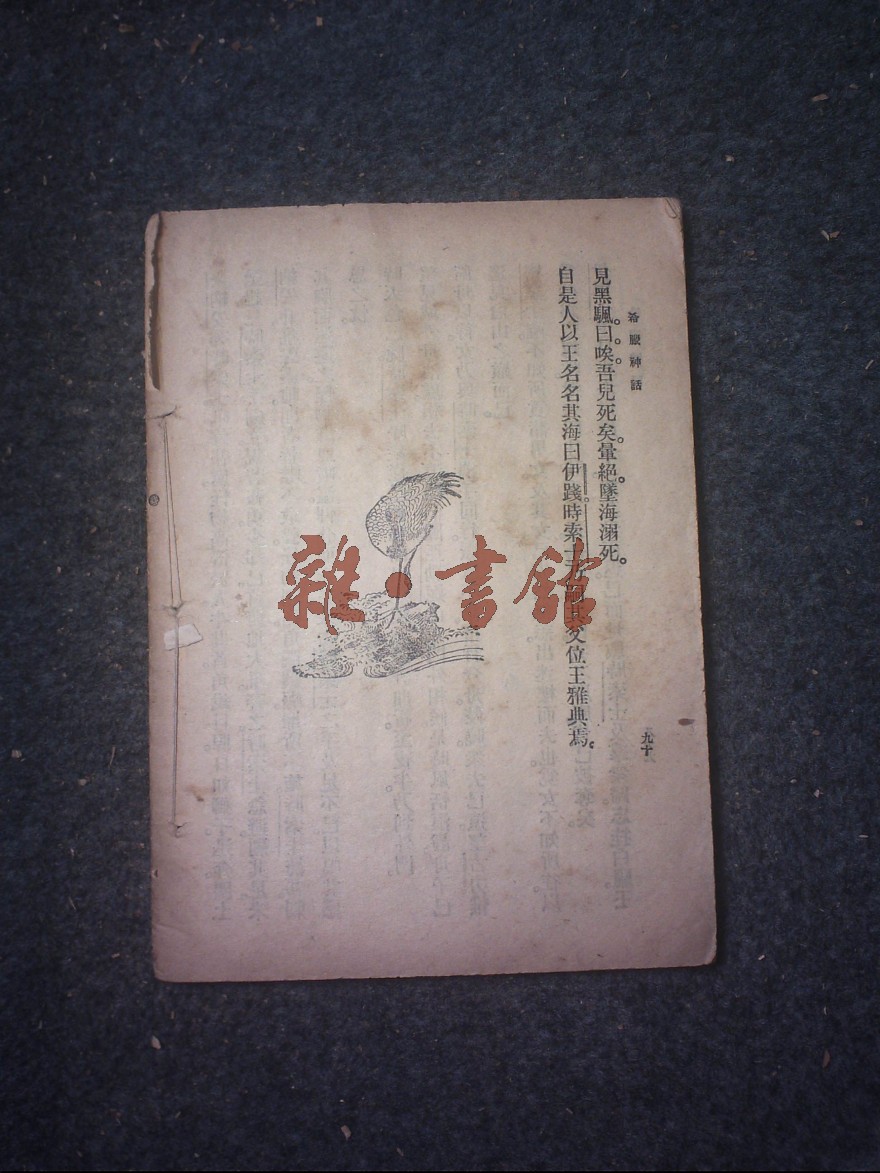 希臘神話
見黑颿。曰。唉。吾兒死矣。暈絕。墜海溺死。
自是人以王名名其海曰伊踐。時索士
父位王雅典焉。
九十
雜·書館